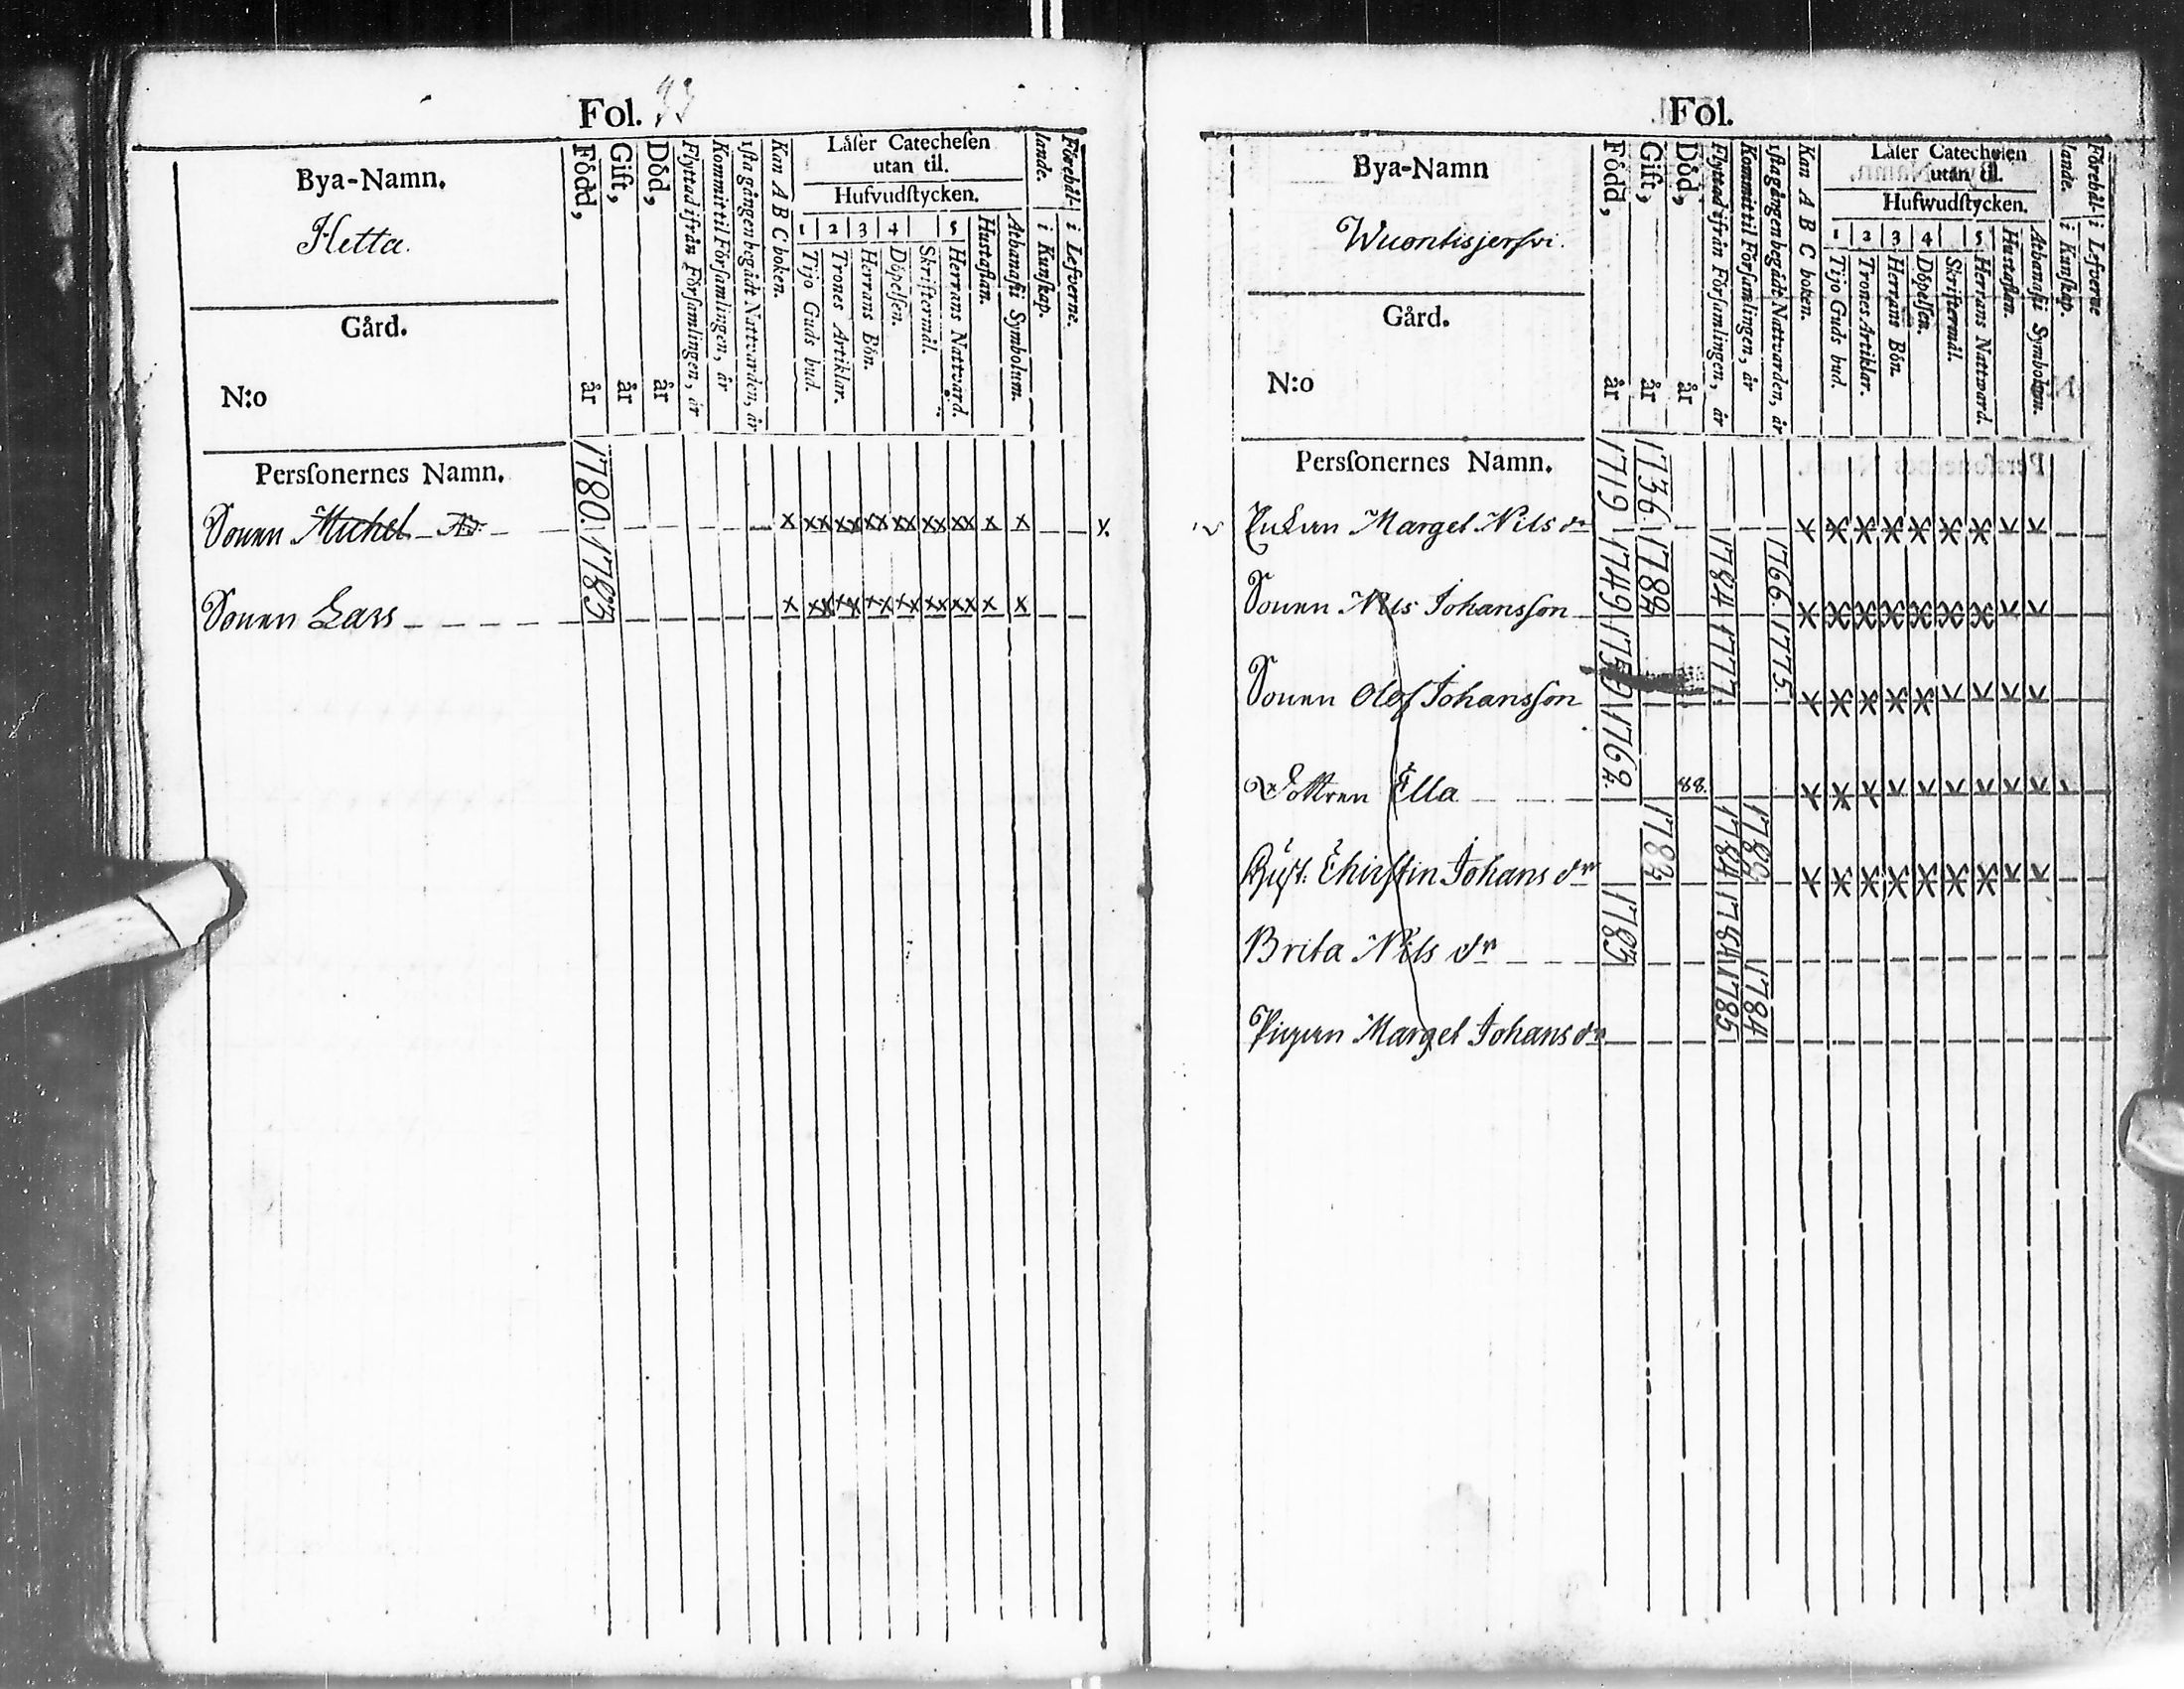 Fol. 33
Bya-Namn.
Hetta.
Gård.
N:o
Persſonernes Namn.
Född, år
Gift, år
Död, år
Flyttad ifrån Förſamlingen, år
Kommit til Förſamlingen, år
1ſta gången begådt Nattvarden, år
Kan A B C boken.
Låſer Catecheſen
utan til.
Hufvudſtycken.
1 2 3 4 5
Tijo Guds bud.
Trones Artiklar.
Herrans Bön.
Döpelſen.
Skriftermål.
Herrans Natvard.
Huſtaflan.
Athanaſii Symbolum.
Förehål-
lande.
i Kunſkap.
i Lefverne.
Sonen Michel 1780. x xx xx xx xx xx xx x x x
Sonen Lars 1783 x xx xx xx xx xx xx x x
Fol.
Bya-Namn
Wuontisjerfwi.
Gård.
N:o
Persſonernes Namn.
Född, år
Gift, år
Död, år
Flyttad ifrån Förſamlingen, år
Kommit til Förſamlingen, år
1ſta gången begådt Natvarden, år
Kan A B C boken.
Låſer Catecheſen
utan til.
Hufwudſtycken.
1 2 3 4 5
Tijo Guds bud.
Trones Artiklar.
Herrans Bön.
Döpelſen.
Skriftermål.
Herrans Nattward.
Huſtaflan.
Athanaſii Symbolum.
Förehål-
lande.
i Kunſkap.
i Lefverne
Enkan Marget Nils dr 1719 1736.
Sonen Nils Johansſon 1749 1782 1784 1766.
Sonen Olof Johansſon 1759 1777. 1775.
Dottren Ella 1762. 88.
Huſt. Chirſtin Johans dr 1782 1784 1782
Brita Nils dr 1783 1784
Pigan Marget Johans dr 1785 1784